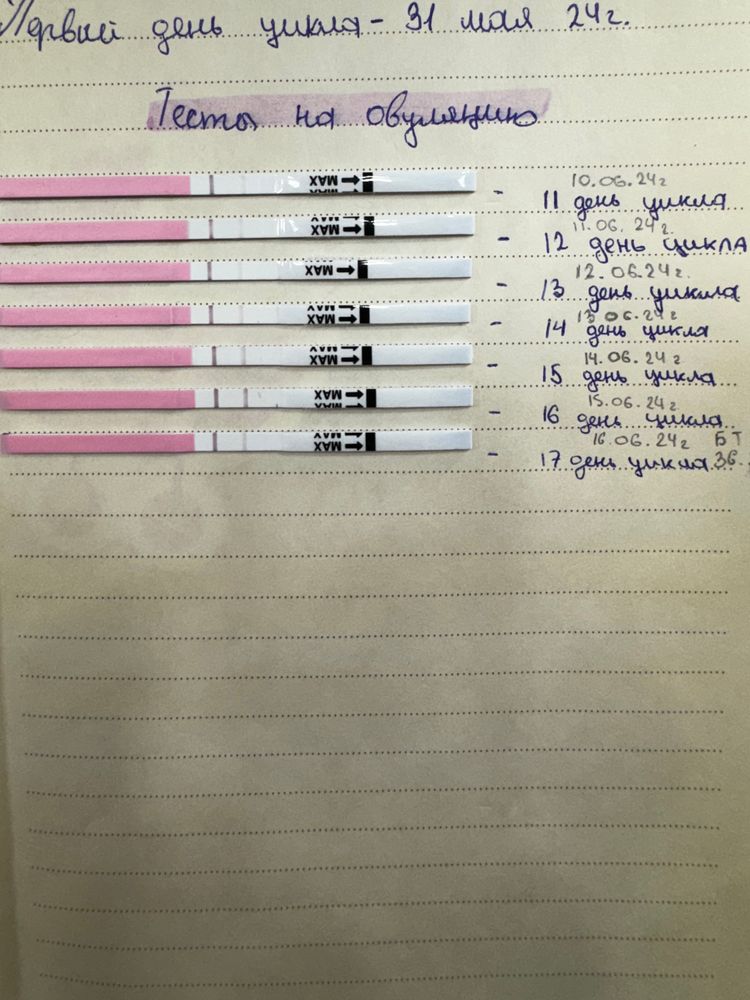 Первый день цикла - 31 мая 24г.
Тесты на овуляцию
10.06.24г
MAX - 11 день цикла
11.06.24г.
MAX - 12 день цикла
12.06.24г.
MAX - 13 день цикла
13 06.24г
MAX - 14 день цикла
14.06.24г
MAX - 15 день цикла
15.06.24г
MAX - 16 день цикла
16.06.24г БТ
MAX - 17 день цикла 36.